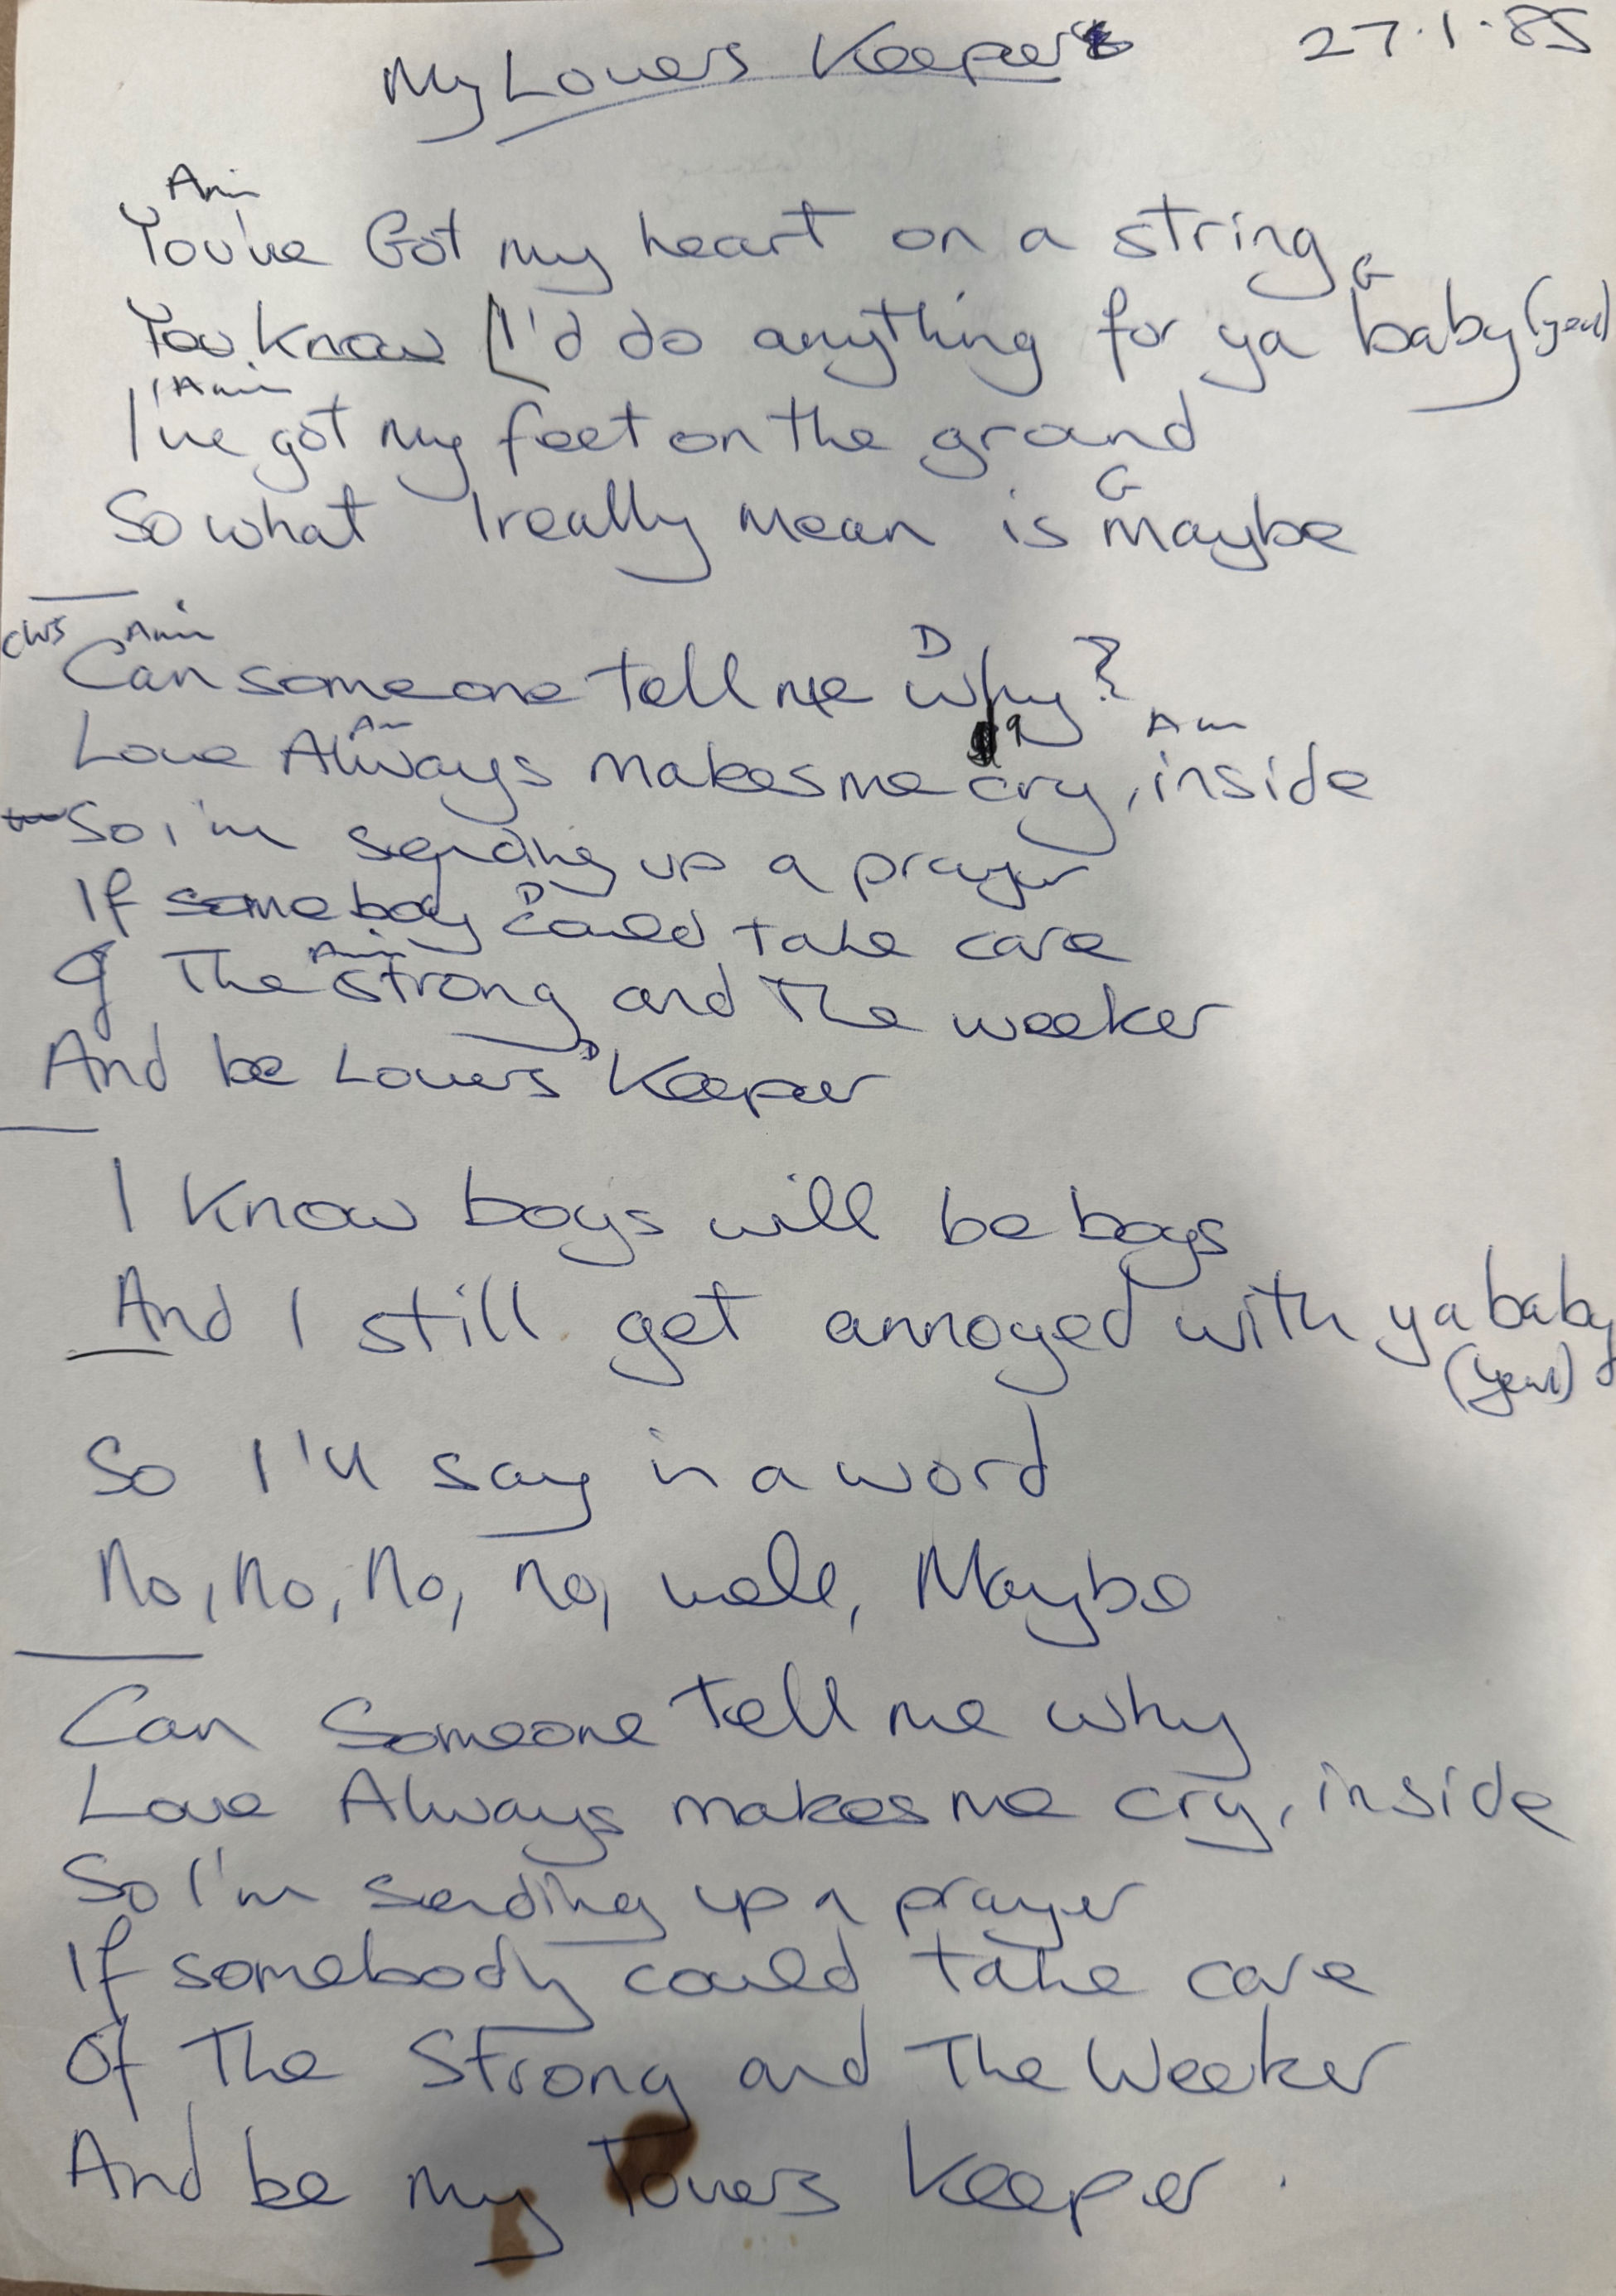 My Lovers Keeper 27.1.85
Ami
You've Got my heart on a string
G
You know [I'd do anything for ya baby (yeah)
Ami
I've got my feet on the ground
G
So what I really mean is maybe
CHS Ami D
Can someone tell me why?
Am Am
Love Always makes me cry, inside
So i'm sending up a prayer
D
If somebody could take care
Ami
Of The strong and The weeker
D
And be Lovers Keeper
I know boys will be boys
And I still get annoyed with ya baby
(yeah)
So I'll say in a word
No, No, No, no, well, Maybe
Can Someone tell me why
Love Always makes me cry, inside
So I'm sending up a prayer
If somebody could take care
Of The Strong and The Weeker
And be my Lovers Keeper.